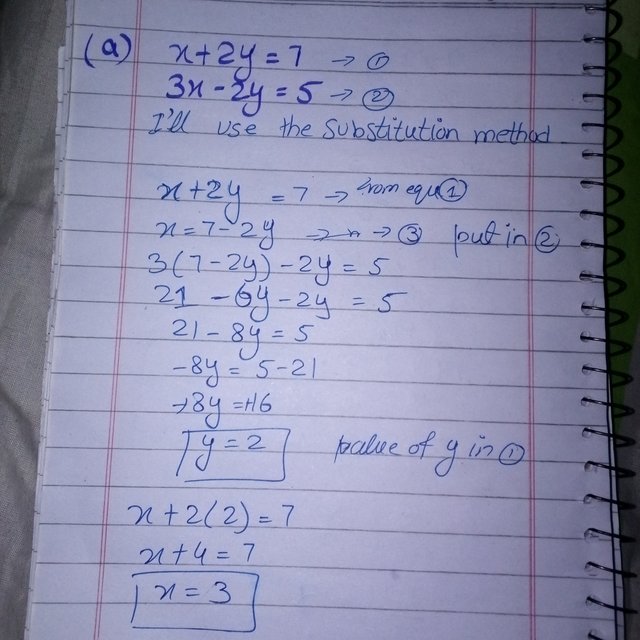 (a) x+2y=7 → ①
3x-2y=5 → ②
I'll use the substitution method
x+2y = 7 → from equ ①
x=7-2y → ③ put in ②
3(7-2y)-2y = 5
21 - 6y-2y = 5
21-8y=5
-8y= 5-21
+8y =+16
y=2 value of y in ①
x+2(2)=7
x+4=7
x=3